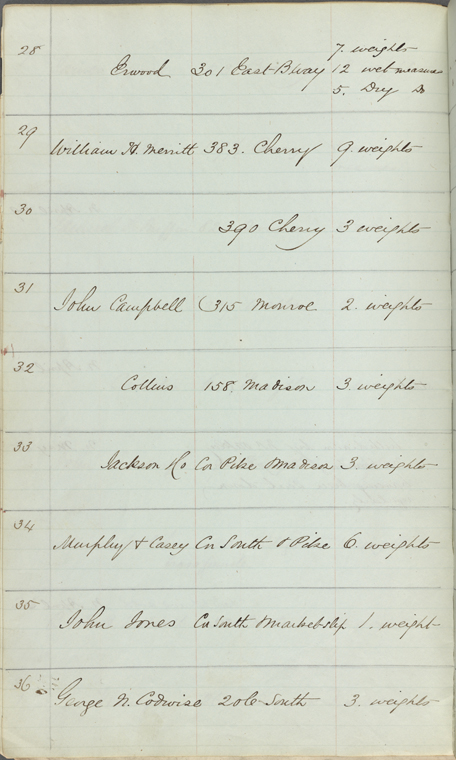 7. weights
28 Erwood 301 East Bway 12 wet measures
5. Dry Do
29 William H. Merritt 383. Cherry 9. weights
30 390 Cherry 3 weights
31 John Campbell 315 Monroe 2. weights
32 Collins 158. Madison 3. weights
33 Jackson & Co Cor Pike & Madison 3. weights
34 Murphy & Casey Cr South & Pike 6. weights
35 John Jones Cr South & Market slip 1. weight
36 George N. Codwise 206 South 3. weights